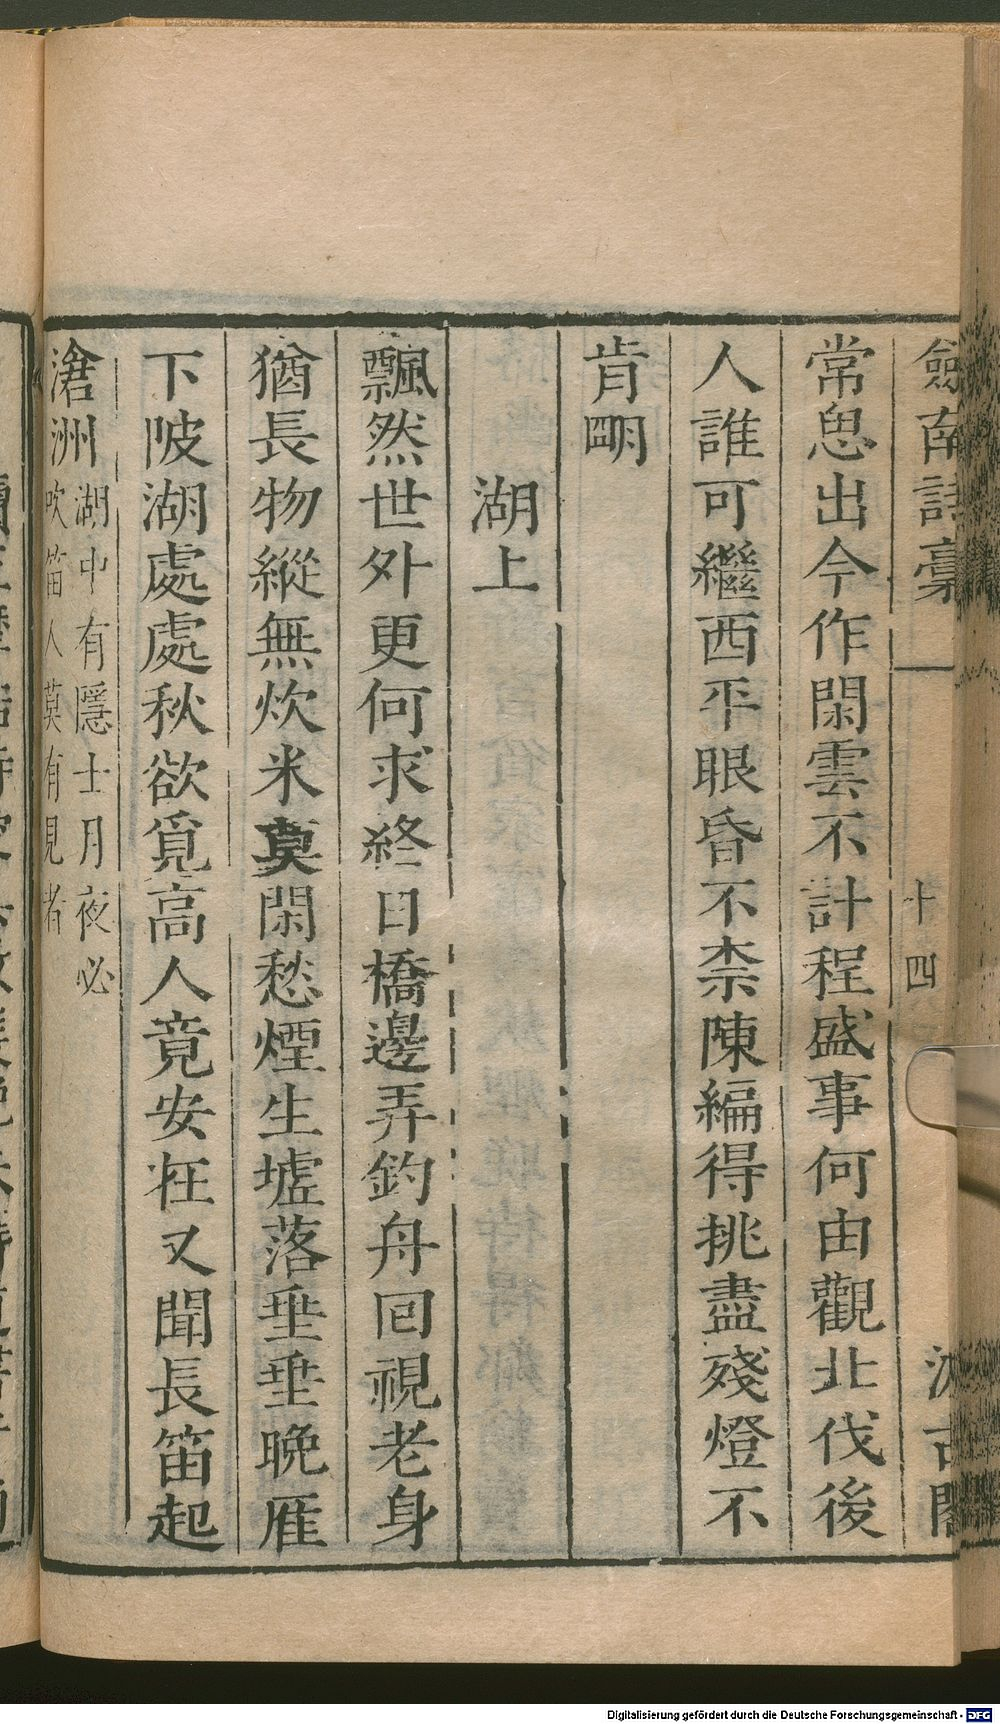 劍南詩稾 十四 汲古閣
常思出今作閑雲不計程盛事何由觀北伐後
人誰可繼西平眼昏不柰陳編得挑盡殘燈不
肯明
湖上
飄然世外更何求終日橋邊弄釣舟回視老身
猶長物縱無炊米莫閑愁煙生墟落垂垂晚雁
下陂湖處處秋欲覓高人竟安在又聞長笛起
滄洲
湖中有隱士月夜必
吹笛人莫有見者
Digitalisierung gefördert durch die Deutsche Forschungsgemeinschaft - DFG